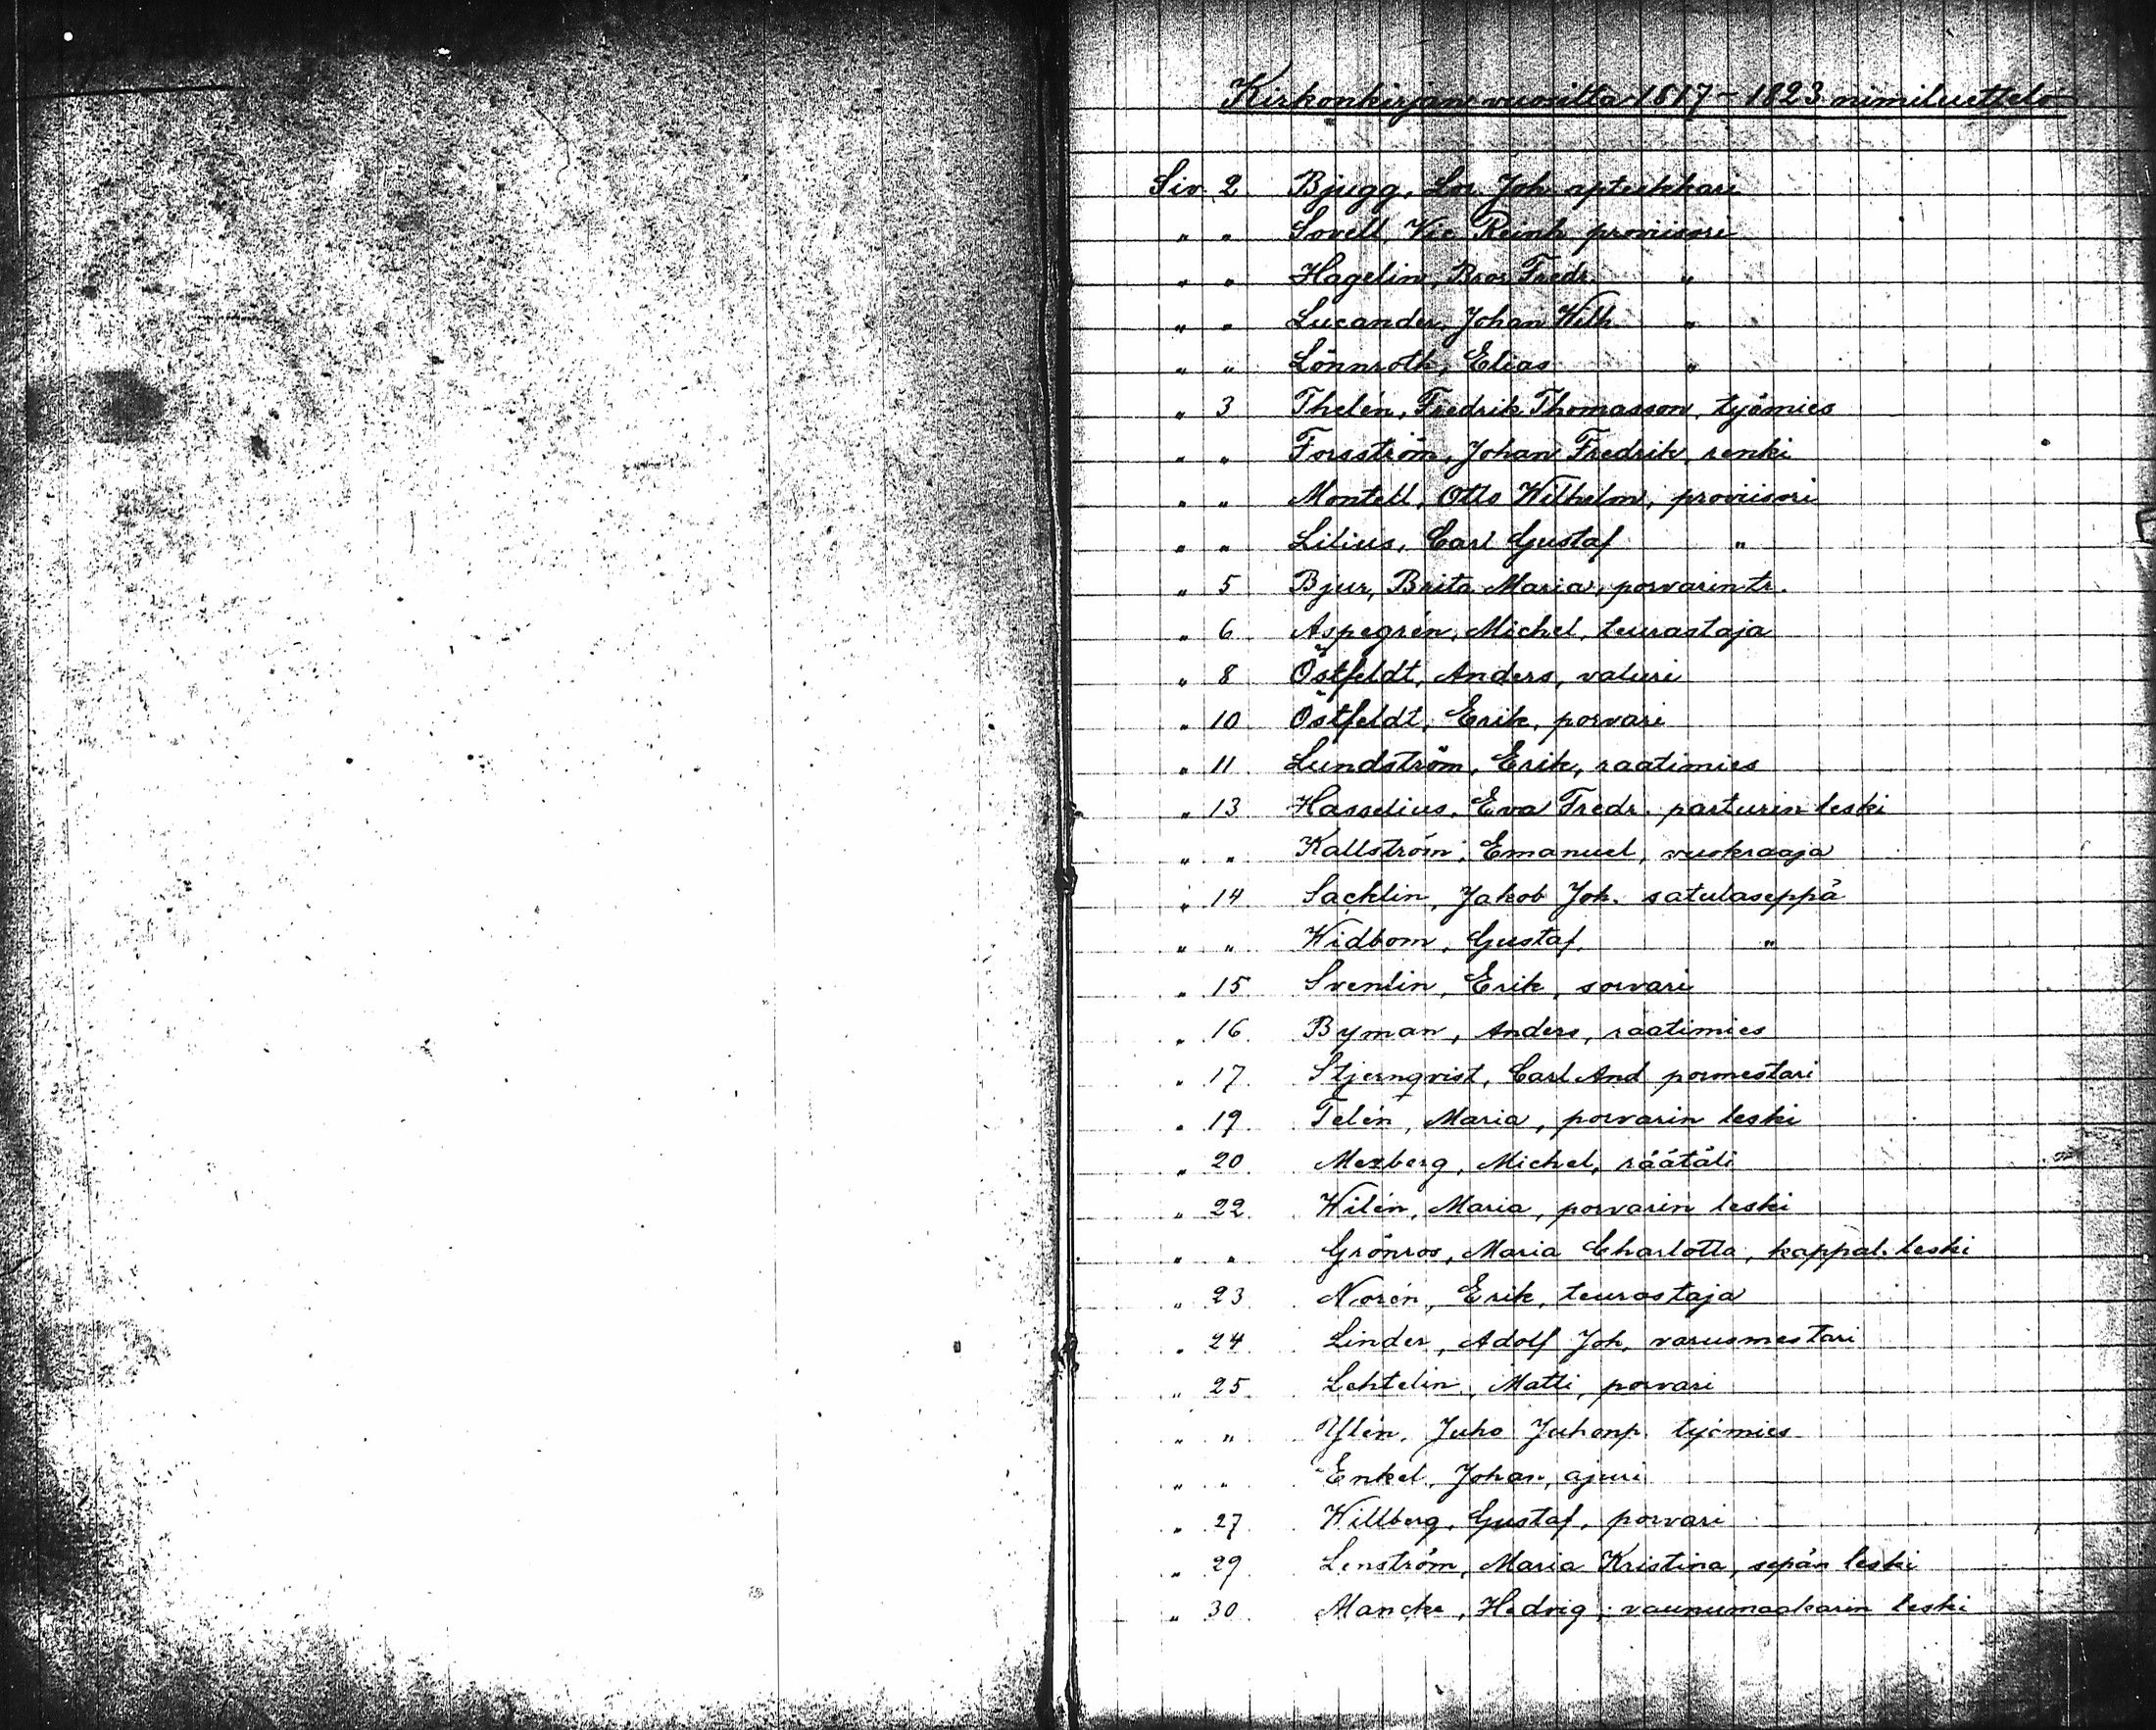 Kirkonkirjan vuosilta 1817 - 1823 nimiluettelo
Siv. 2 Bjugg, Lor. Joh. apteekkari
" " Sovell, Vic. Reinh. proviisori
" " Hagelin, Bror Fredr. "
" " Lucander, Johan Wilh. "
" " Lönnroth, Elias "
" 3 Thelén, Fredrik Thomasson, työmies
" " Forsström, Johan Fredrik, renki
" " Montell, Otto Wilhelm, proviisori
" " Lilius, Carl Gustaf "
" 5 Bjur, Brita Maria, porvarin tr.
" 6 Aspegrén, Michel, teurastaja
" 8 Östfeldt, Anders, valuri
" 10 Östfeldt, Erik, porvari
" 11 Lundström, Erik, raatimies
" 13 Hasselius, Eva Fredr. parturin leski
" " Kallström, Emanuel, vuokraaja
" 14 Sacklin, Jakob Joh. satulaseppä
" " Widbom, Gustaf, "
" 15 Svenlin, Erik, sorvari
" 16 Byman, Anders, raatimies
" 17 Stjernqvist, Carl And pormestari
" 19 Telén, Maria, porvarin leski
" 20 Mexberg, Michel, räätäli
" 22 Wilén, Maria, porvarin leski
" " Grönros, Maria Charlotta, kappal. leski
" 23 Norén, Erik, teurastaja
" 24 Linder, Adolf Joh, varusmestari
" 25 Lehtelin, Matti, porvari
" " Yflén, Juho Juhonp. työmies
" " Enkel, Johan, ajuri
" 27 Willberg, Gustaf, porvari
" 29 Lenström, Maria Kristina, sepän leski
" 30 Mancke, Hedvig, vaunumaakarin leski